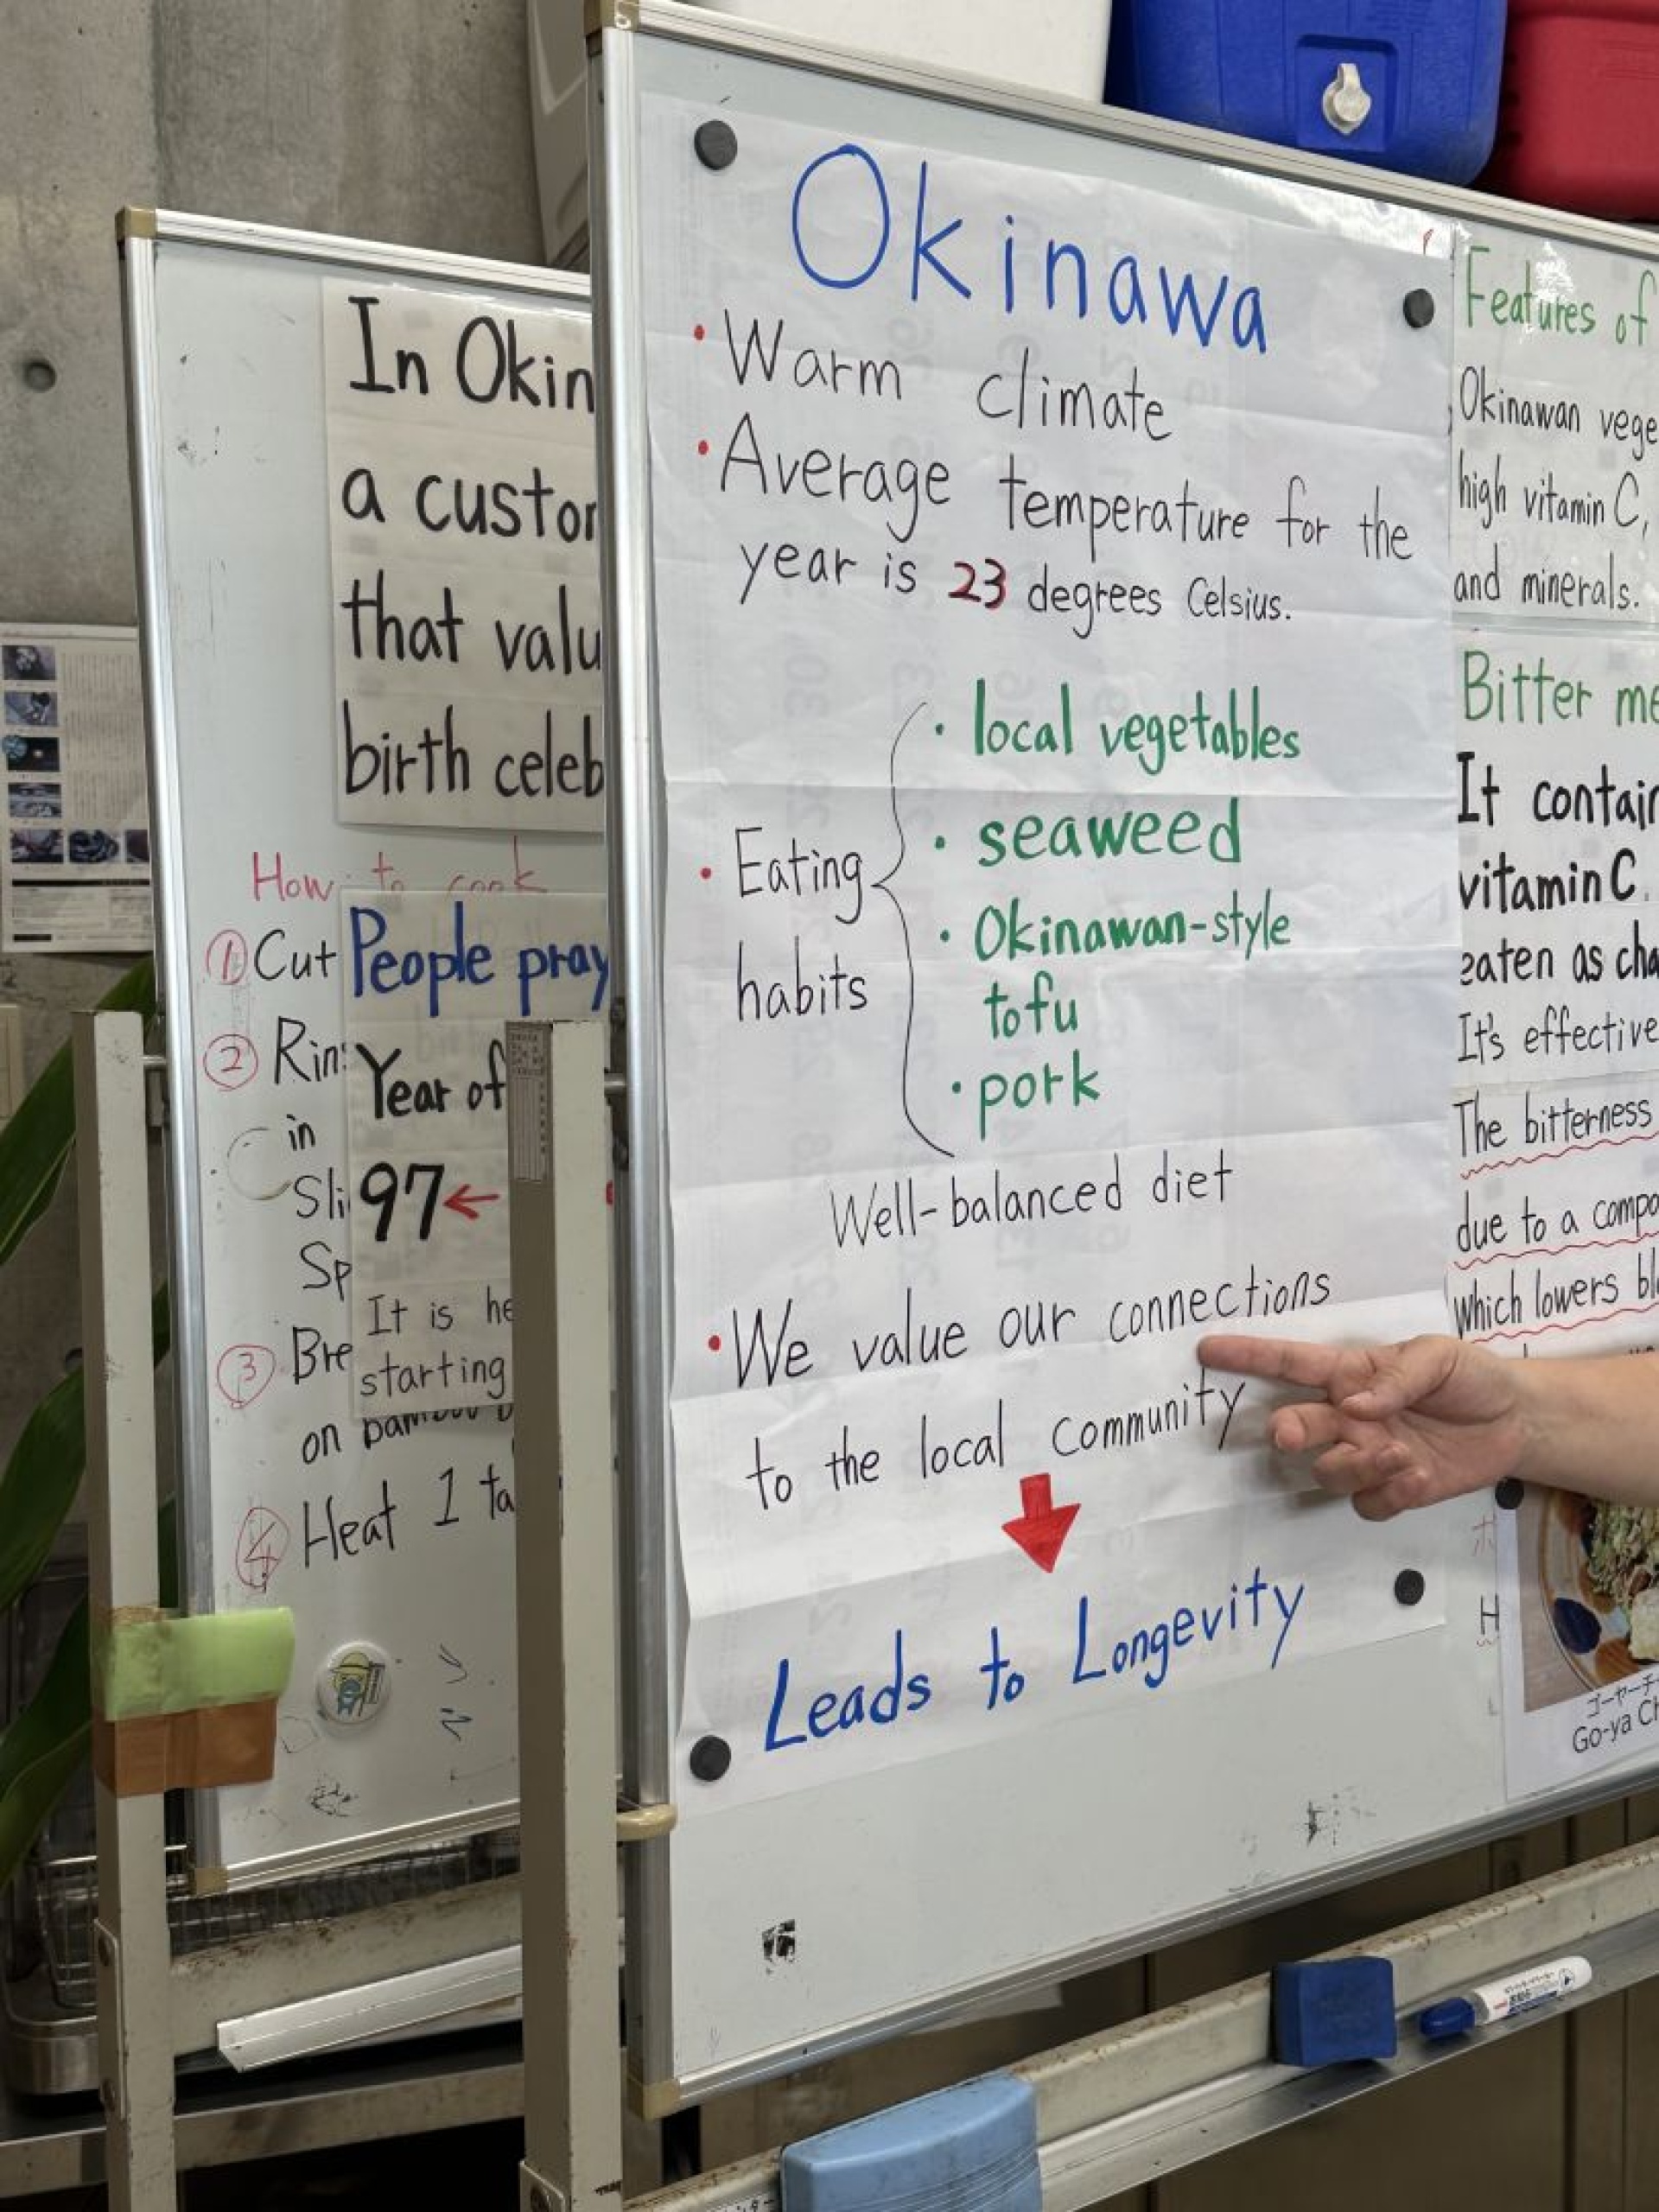 In Okin
a custom
that valu
birth celeb
How to cook
① Cut
② Rin
in
Sli
Sp
③ Bre
on bamboo b
④ Heat 1 ta
People pray
Year of
97 ←
It is he
starting
Okinawa
・Warm climate
・Average temperature for the
year is 23 degrees Celsius.
・Eating
habits
・local vegetables
・seaweed
・Okinawan-style
tofu
・pork
Well-balanced diet
・We value our connections
to the local community
Leads to Longevity
Features of
Okinawan vege
high vitamin C,
and minerals.
Bitter me
It contain
vitamin C.
eaten as cha
It's effective
The bitterness
due to a compo
which lowers bl
H
ゴーヤーチ
Go-ya Ch